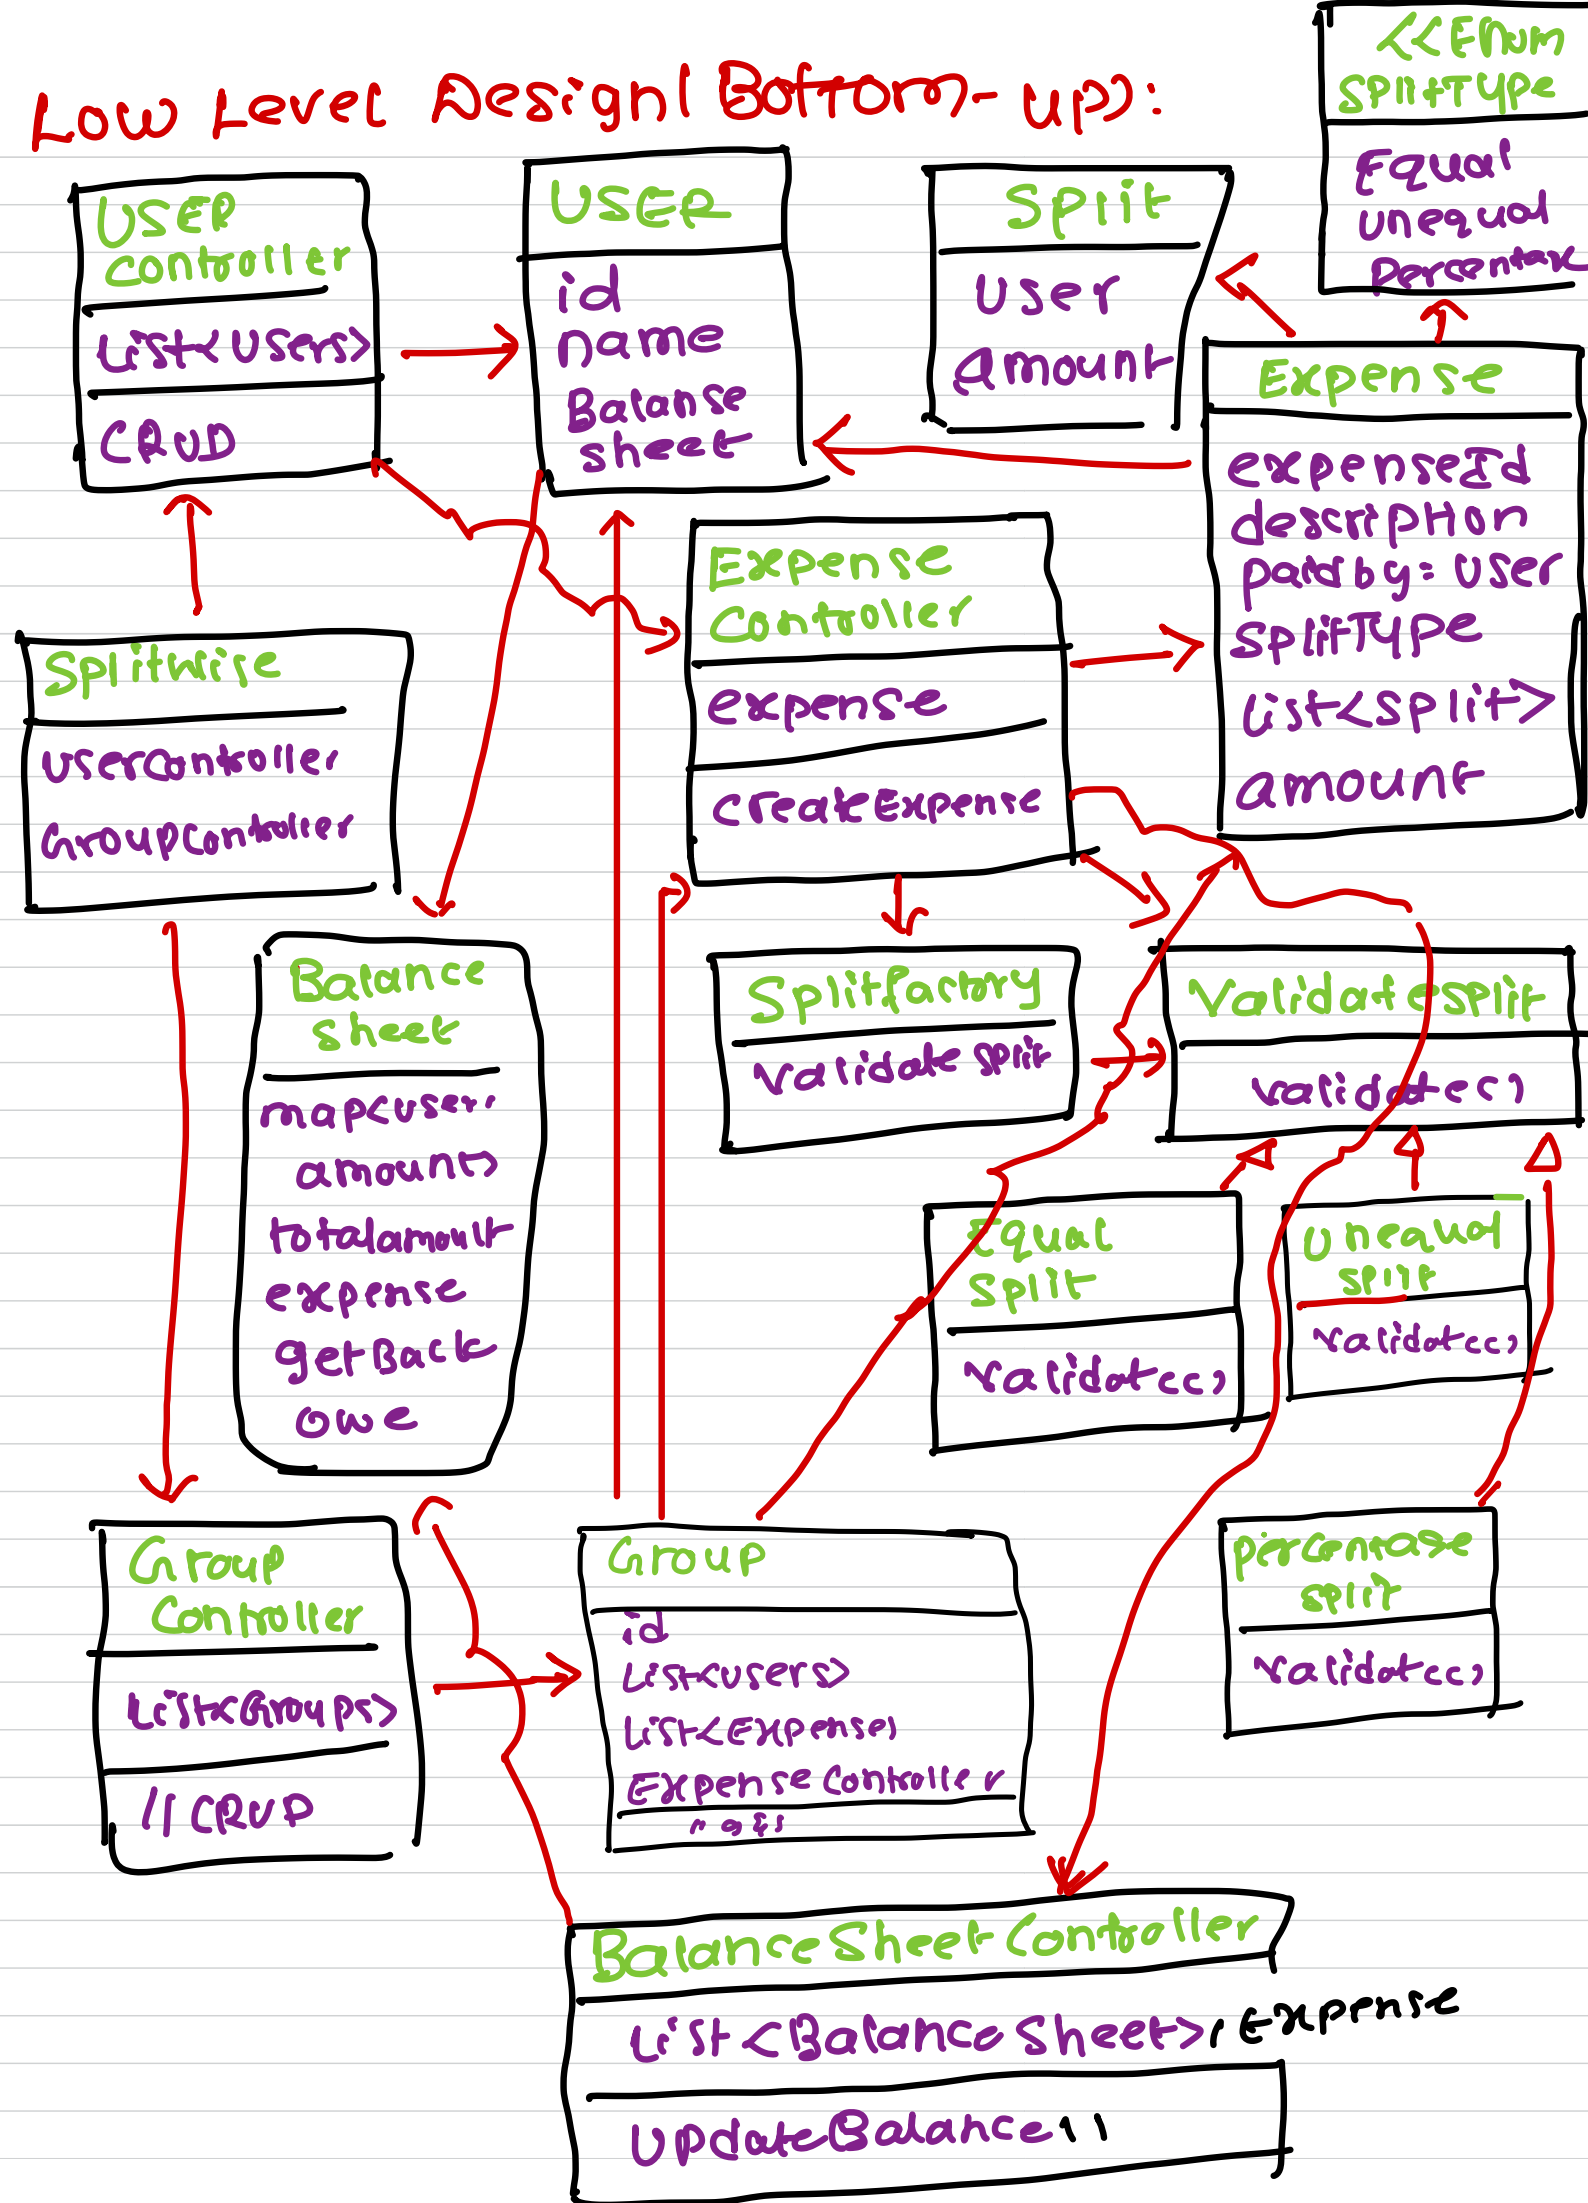 Low Level Design( Bottom-up):
<<Enum
SplitType
Equal
unequal
Percentage
USER
controller
List<Users>
CRUD
USER
id
name
Balanse
sheet
Split
User
amount
Expense
expenseId
description
paid by: user
splitType
List<split>
amount
Expense
Controller
expense
createExpense
Splitwise
userController
GroupController
Balance
sheet
map<user,
amount>
totalamount
expense
getBack
owe
Splitfactory
validate split
Validatesplit
validate()
Equal
split
validate()
unequal
split
validate()
percentage
split
validate()
Group
Controller
List<Groups>
//CRUD
Group
id
List<users>
List<Expense>
Expense Controller
BalanceSheet Controller
List<Balance Sheet>, Expense
UpdateBalance()